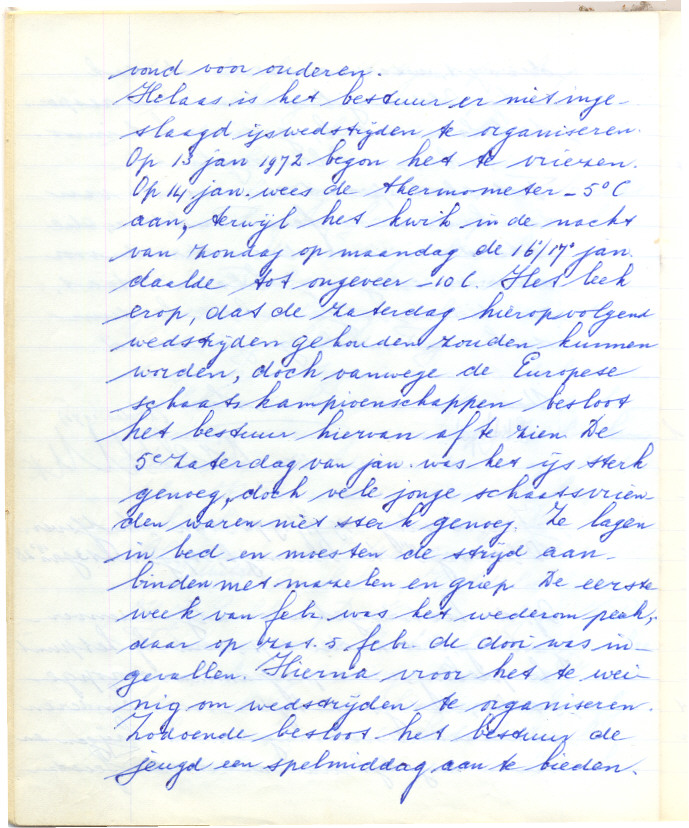 vond voor ouderen.
Helaas is het bestuur er niet inge-
slaagd ijswedstrijden te organiseren.
Op 13 jan 1972 begon het te vriezen.
Op 14 jan. wees de thermometer -5°C
aan, terwijl het kwik in de nacht
van zondag op maandag de 16e/17e jan.
daalde tot ongeveer -10 C. Het leek
erop, dat de zaterdag hieropvolgend
wedstrijden gehouden zouden kunnen
worden, doch vanwege de Europese
schaatskampioenschappen besloot
het bestuur hiervan af te zien. De
5e zaterdag van jan. was het ijs sterk
genoeg, doch vele jonge schaatsvrien-
den waren niet sterk genoeg. Ze lagen
in bed en moesten de strijd aan-
binden met mazelen en griep. De eerste
week van febr. was het wederom pech,
daar op zat. 5 febr. de dooi was in-
gevallen. Hierna vroor het te wei-
nig om wedstrijden te organiseren.
Zodoende besloot het bestuur de
jeugd een spelmiddag aan te bieden.